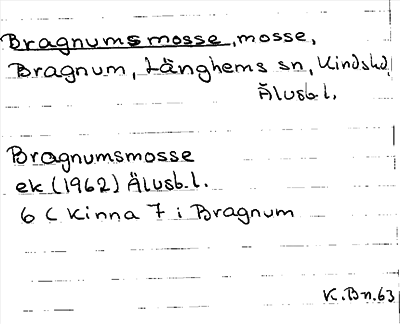 Bragnumsmosse, mosse,
Bragnum, Länghems sn, Kindshd,
Älvsb.l.
Bragnumsmosse
ek (1962) Älvsb.l.
6 C Kinna 7 i Bragnum
K.Bn.63